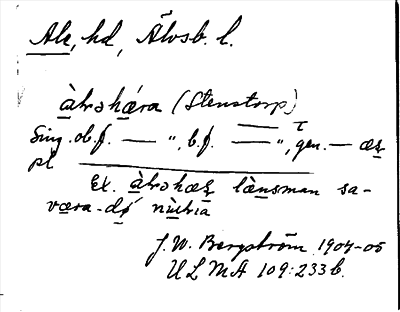 Ale, hd, Älvsb. l.
àlrəhǽra (Stenstorp)
Sing. ob. f. — ", b. f. — ", gen. — æs̱
pl
Ex. àlrəhæs̱ länsman sa-
væra-
J. W. Bergström 1904-05
ULMA 109:233 b.